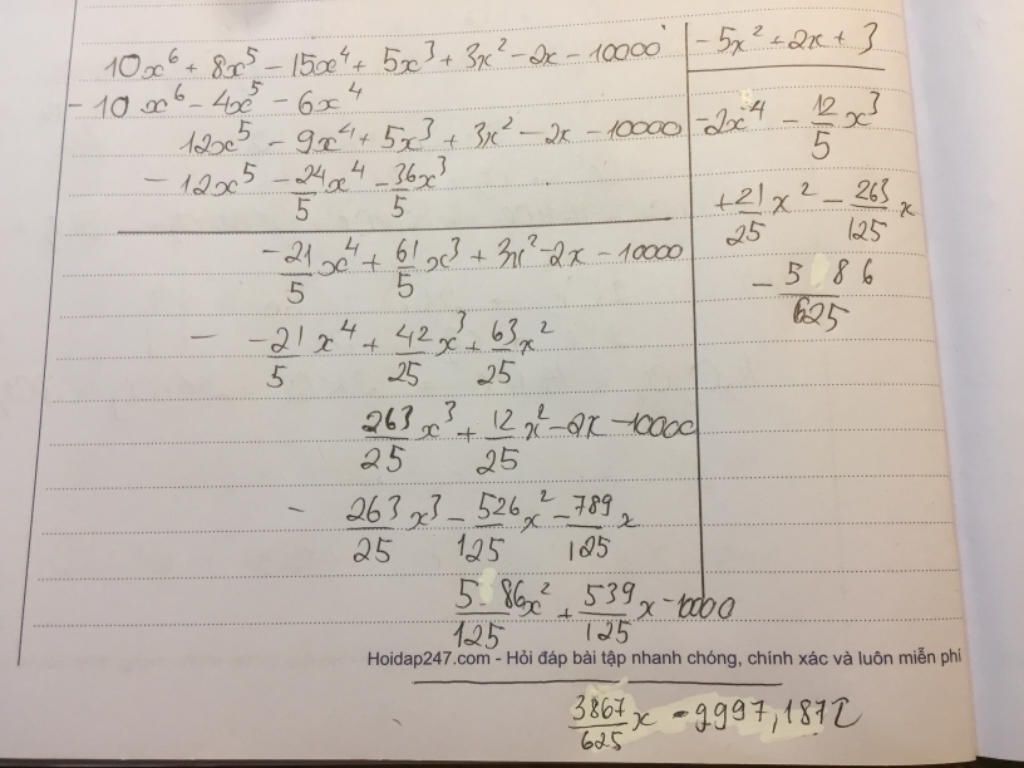 10x⁶ + 8x⁵ - 15x⁴ + 5x³ + 3x² - 2x - 10000
- 5x² + 2x + 3
- 10x⁶ - 4x⁵ - 6x⁴
12x⁵ - 9x⁴ + 5x³ + 3x² - 2x - 10000
-2x⁴ - 12/5 x³
- 12x⁵ - 24/5 x⁴ - 36/5 x³
+ 21/25 x² - 263/125 x
-21/5 x⁴ + 61/5 x³ + 3x² - 2x - 10000
- 5 86/625
- -21/5 x⁴ + 42/25 x³ + 63/25 x²
263/25 x³ + 12/25 x² - 2x - 10000
- 263/25 x³ - 526/125 x² - 789/125 x
5 86/125 x² + 539/125 x - 10000
Hoidap247.com - Hỏi đáp bài tập nhanh chóng, chính xác và luôn miễn phí
3867/625 x - 9997,1872